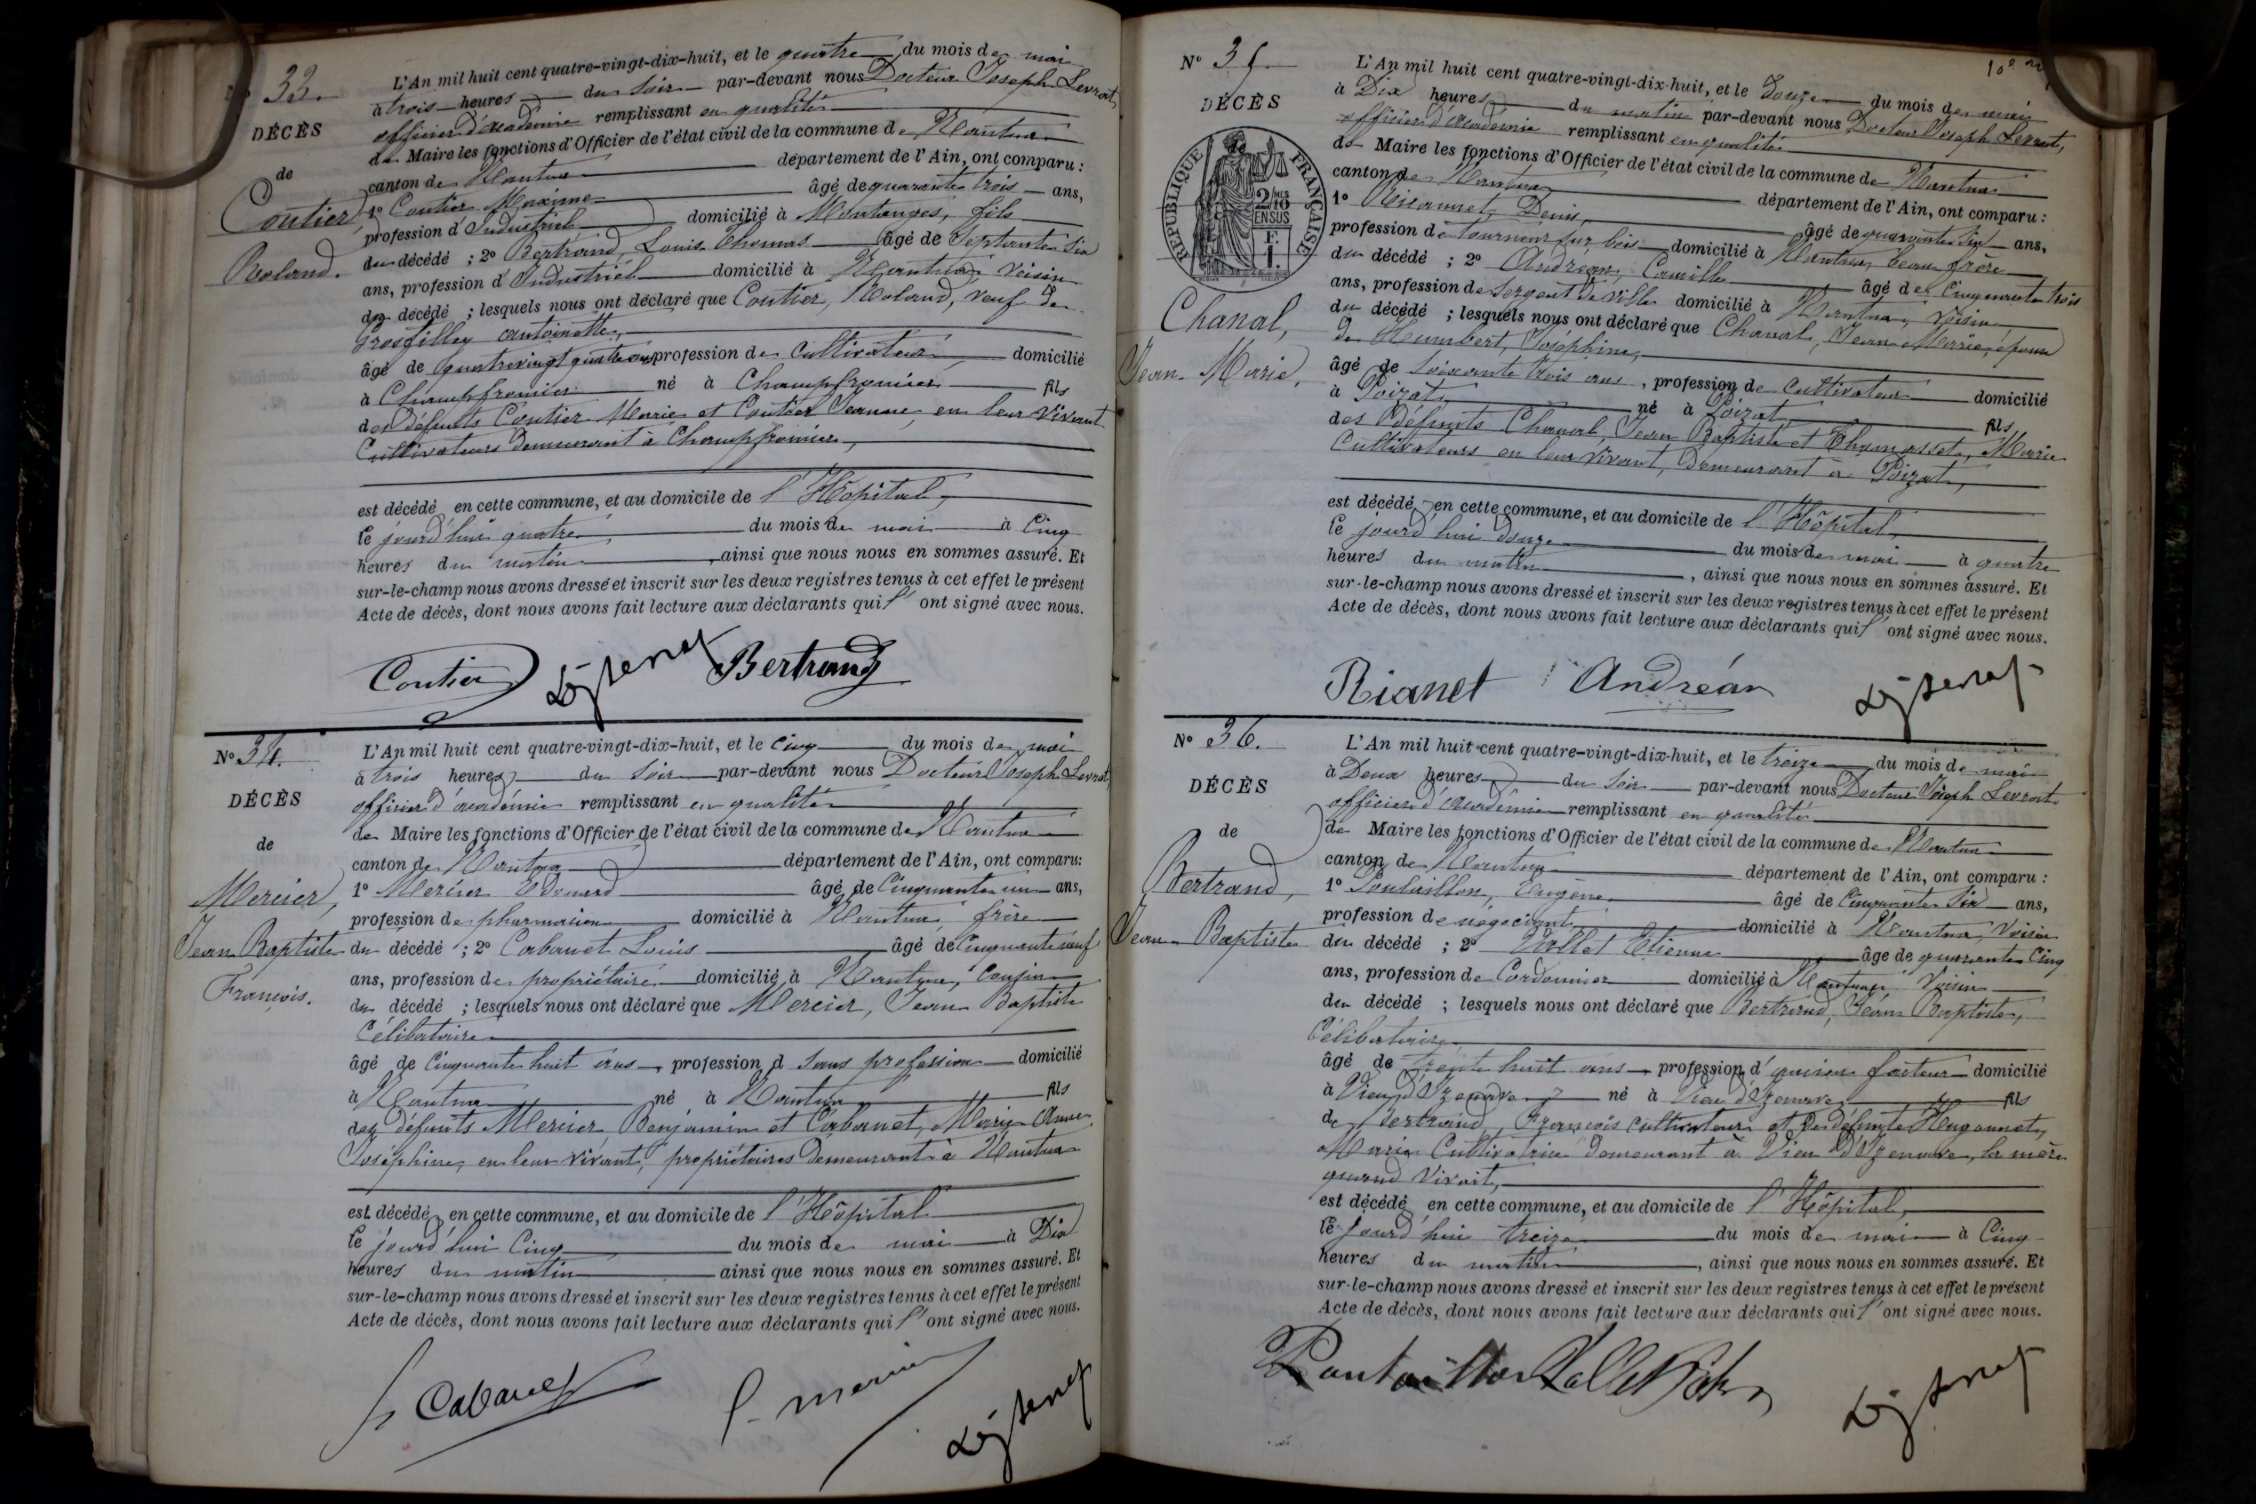 N° 33.
DÉCÈS
de
Coutier,
Roland.
L'An mil huit cent quatre-vingt-dix-huit, et le quatre du mois de mai
à trois heures du soir par-devant nous Docteur Joseph Levrat,
officier d'académie remplissant en qualité
de Maire les fonctions d'Officier de l'état civil de la commune de Nantua
canton de Nantua département de l'Ain, ont comparu :
1° Coutier Maxime âgé de quarante trois ans,
profession d'Industriel domicilié à Montanges, fils
du décédé ; 2° Bertrand, Louis Thomas âgé de Septante Six
ans, profession d'Industriel domicilié à Nantua, voisin
du décédé ; lesquels nous ont déclaré que Coutier, Roland, veuf de
Grosfilley antoinette,
âgé de quatrevingt quatre ans profession de Cultivateur domicilié
à Champfromier né à Champfromier fils
des défunts Coutier Marie et Coutier Jeanne, en leur vivant
Cultivateurs demeurant à Champfromier,
est décédé en cette commune, et au domicile de l'Hôpital,
le jourd'hui quatre du mois de mai à Cinq
heures du matin, ainsi que nous nous en sommes assuré. Et
sur-le-champ nous avons dressé et inscrit sur les deux registres tenus à cet effet le présent
Acte de décès, dont nous avons fait lecture aux déclarants qui l' ont signé avec nous.
Coutier Bertrand
N° 34.
DÉCÈS
de
Mercier,
Jean Baptiste
François.
L'An mil huit cent quatre-vingt-dix-huit, et le cinq du mois de mai
à trois heures du soir par-devant nous Docteur Joseph Levrat,
officier d'académie remplissant en qualité
de Maire les fonctions d'Officier de l'état civil de la commune de Nantua
canton de Nantua département de l'Ain, ont comparu :
1° Mercier Edouard âgé de Cinquante un ans,
profession de pharmacien domicilié à Nantua, frère
du décédé ; 2° Cabanet Louis âgé de Cinquante neuf
ans, profession de propriétaire domicilié à Nantua, Cousin
du décédé ; lesquels nous ont déclaré que Mercier, Jean Baptiste
Célibataire
âgé de Cinquante huit ans, profession d sans profession domicilié
à Nantua né à Nantua fils
des défunts Mercier Benjamin et Cabanet, Marie Anne
Joséphine, en leur vivant, propriétaires demeurant à Nantua
est décédé en cette commune, et au domicile de l'Hôpital
le jourd'hui Cinq du mois de mai à Dix
heures du matin ainsi que nous nous en sommes assuré. Et
sur-le-champ nous avons dressé et inscrit sur les deux registres tenus à cet effet le présent
Acte de décès, dont nous avons fait lecture aux déclarants qui l' ont signé avec nous.
Cabanet
N° 35.
DÉCÈS
RÉPUBLIQUE FRANÇAISE
2/10
EN SUS
Chanal,
Jean-Marie,
L'An mil huit cent quatre-vingt-dix-huit, et le Douze du mois de mai
à Dix heures du matin par-devant nous Docteur Joseph Levrat,
officier d'académie remplissant en qualité
de Maire les fonctions d'Officier de l'état civil de la commune de Nantua
canton de Nantua département de l'Ain, ont comparu :
1° Denis, âgé de quarante six ans,
profession de tourneur sur bois domicilié à Nantua, beau frère
du décédé ; 2° Andréan, Camille âgé de Cinquante trois
ans, profession de Sergent de ville domicilié à Nantua, voisin
du décédé ; lesquels nous ont déclaré que Chanal, Jean Marie, époux
de Humbert, Joséphine,
âgé de Soixante trois ans, profession de Cultivateur domicilié
à Poizat, né à Poizat fils
des défunts Chanal Jean Baptiste et Thomasset, Marie
Cultivateurs en leur vivant, Demeurant à Poizat,
est décédé en cette commune, et au domicile de l'Hôpital,
le jourd'hui douze du mois de mai à quatre
heures du matin, ainsi que nous nous en sommes assuré. Et
sur-le-champ nous avons dressé et inscrit sur les deux registres tenus à cet effet le présent
Acte de décès, dont nous avons fait lecture aux déclarants qui l' ont signé avec nous.
Andréan
N° 36.
DÉCÈS
de
Bertrand,
Jean-Baptiste
L'An mil huit cent quatre-vingt-dix-huit, et le treize du mois de mai
à Deux heures du soir par-devant nous Docteur Joseph Levrat
officier d'académie remplissant en qualité
de Maire les fonctions d'Officier de l'état civil de la commune de Nantua
canton de Nantua département de l'Ain, ont comparu :
1° Eugène âgé de Cinquante Six ans,
profession de négociant, domicilié à Nantua, Voisin
du décédé ; 2° Etienne âgé de quarante Cinq
ans, profession de Cordonnier domicilié à Nantua, Voisin
du décédé ; lesquels nous ont déclaré que Bertrand, Jean Baptiste,
Célibataire,
âgé de trente huit ans, profession d'ancien facteur domicilié
à Vieu d'Izenave, né à Vieu d'Izenave, fils
de Bertrand, François cultivateur et de défunte Hugonnet,
Marie Cultivatrice demeurant à Vieu d'Izenave, la mère
quand vivait,
est décédé en cette commune, et au domicile de l'Hôpital,
le jourd'hui treize du mois de mai à Cinq
heures du matin, ainsi que nous nous en sommes assuré. Et
sur-le-champ nous avons dressé et inscrit sur les deux registres tenus à cet effet le présent
Acte de décès, dont nous avons fait lecture aux déclarants qui l' ont signé avec nous.